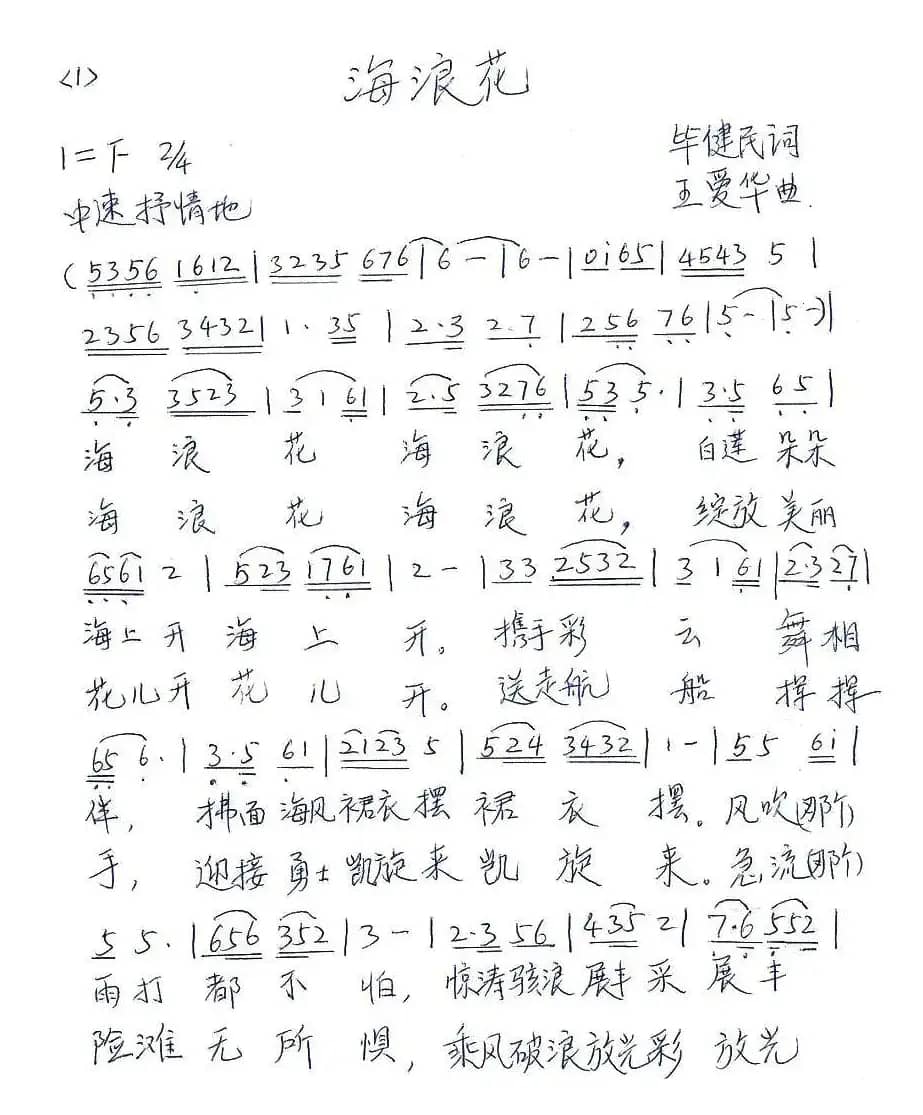 <1> 海浪花
1=F 2/4 毕健民词
中速 抒情地 王爱华曲.
(5356 1612|3235 676|6-|6-|0i65|4543 5|
2356 3432|1·35|2·3 2·7|256 76|5-|5-)|
5·3 3523|3161|2·5 3276|535·|3·5 65|
海浪花 海浪花, 白莲朵朵
海浪花 海浪花, 绽放美丽
6561 2|523 1761|2-|33 2532|3161|2·3 27|
海上开海上开。携手彩云舞相
花儿开花儿开。送走航船挥挥
65 6·|3·5 61|2123 5|524 3432|1-|55 6i|
伴, 拂面海风裙衣摆裙衣摆。风吹(那个)
手, 迎接勇士凯旋来凯旋来。急流(那个)
5 5·|656 352|3-|2·3 56|435 2|7·6 552|
雨打都不怕, 惊涛骇浪展丰采展丰
险滩无所惧, 乘风破浪放光彩放光